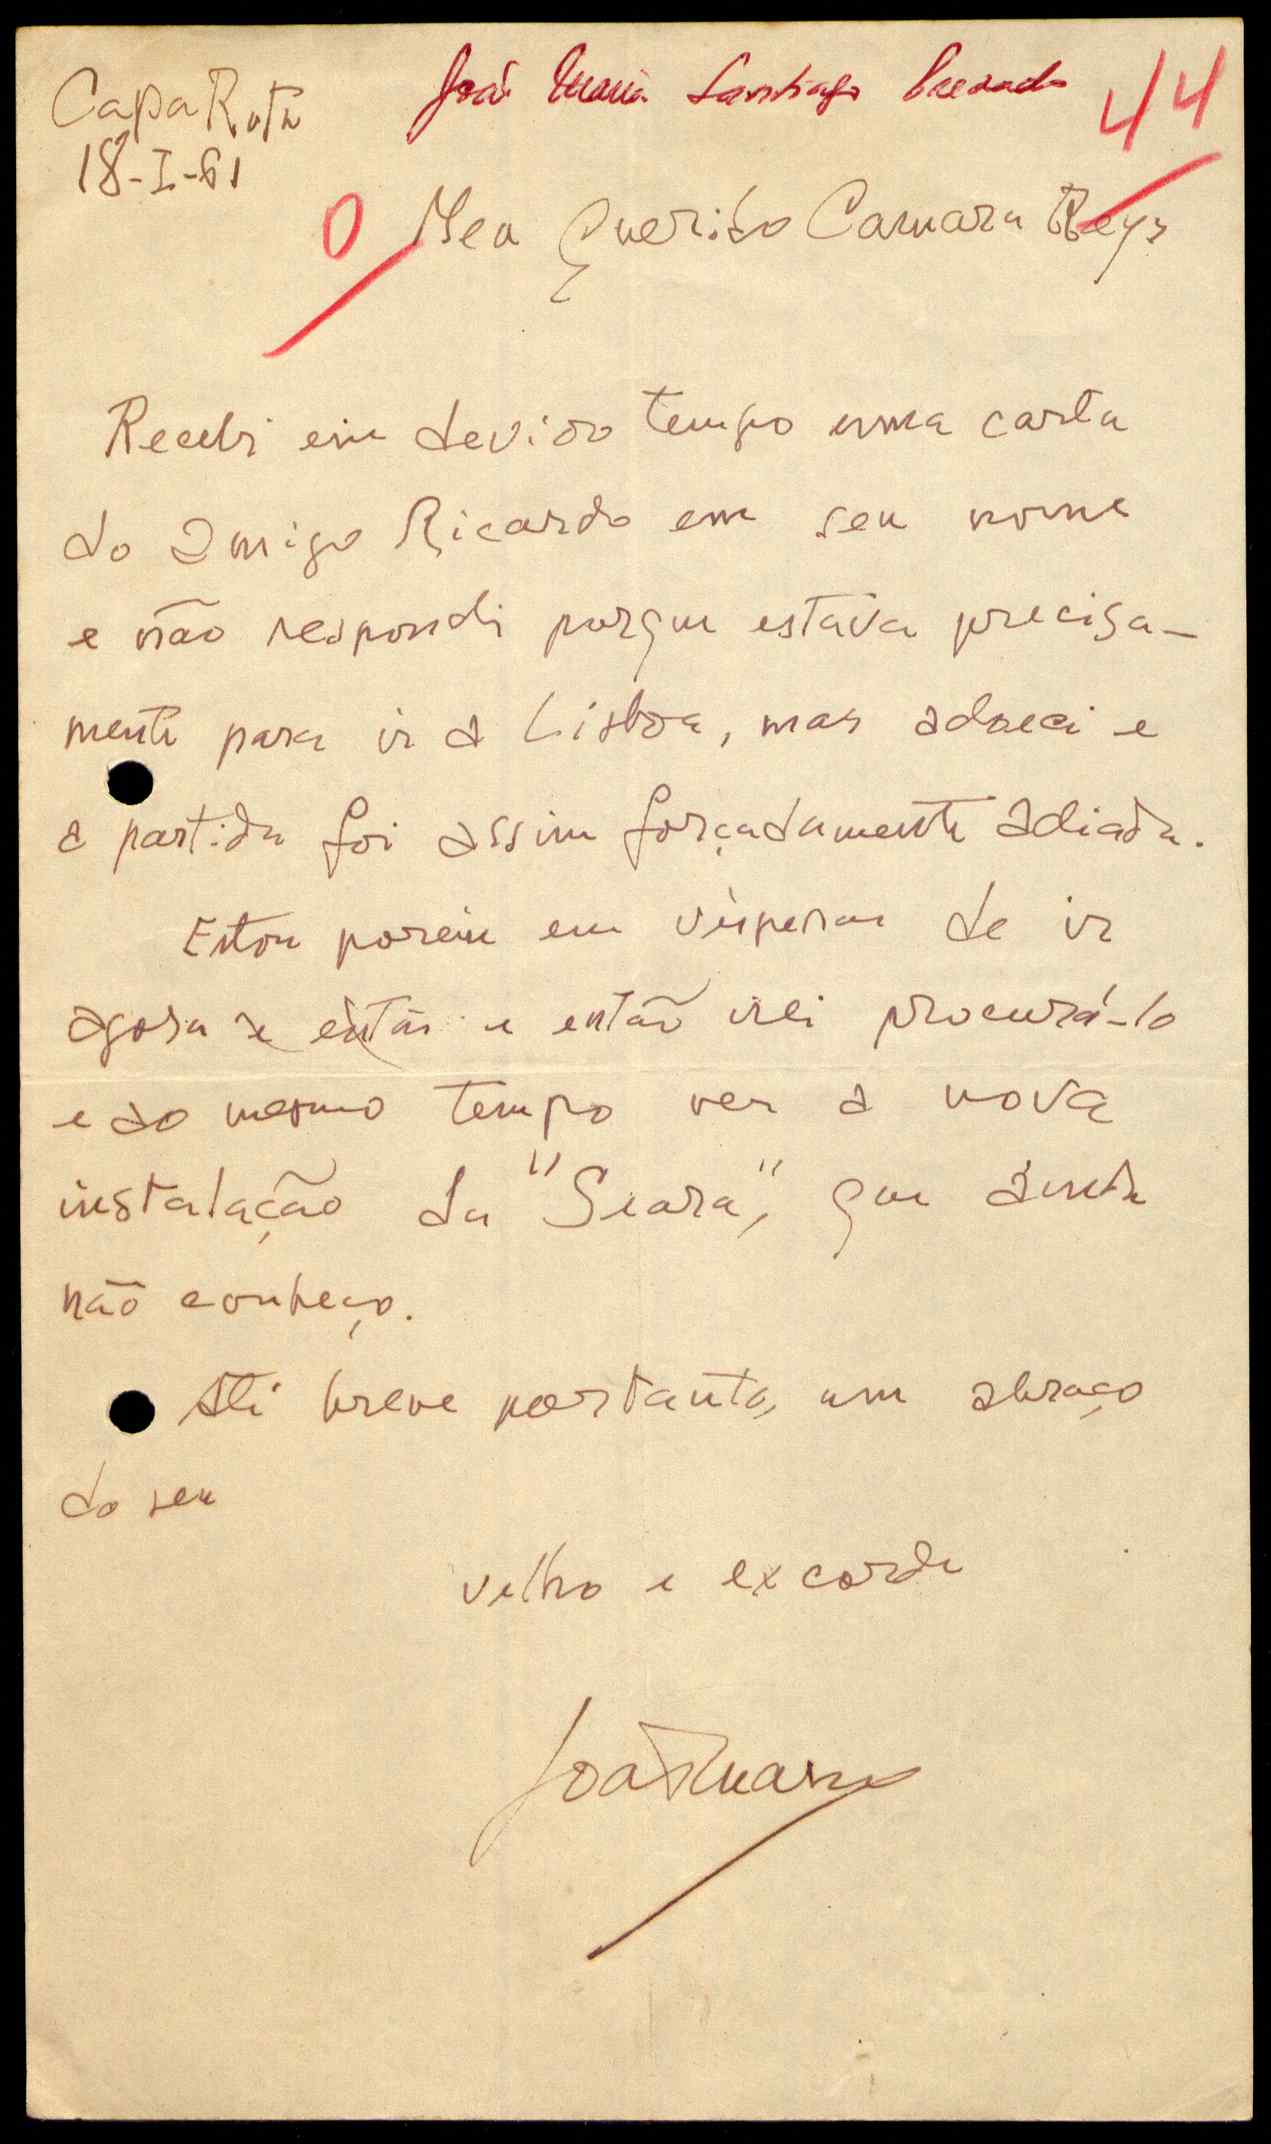 João Maria Santiago Prezado
44
CapaRota
18-I-61
0
Meu Querido Camara Reys
Recebi em devido tempo uma carta
do amigo Ricardo em seu nome
e não respondi porque estava precisa-
mente para ir a Lisboa, mas adoeci e
a partida foi assim forçadamente adiada.
Estou porém em vésperas de ir
agora e então e então irei procurá-lo
e ao mesmo tempo ver a nova
instalação da "Seara", que ainda
não conheço.
Até breve portanto, um abraço
do seu
velho e ex corde
João Maria